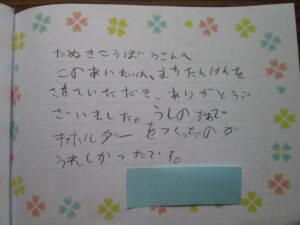 たぬきこうぼうさんへ
このあいだは、まちたんけんを
させていただき、ありがとうご
ざいました。うしのかわで
キホルダーをつくったのが
うれしかったです。